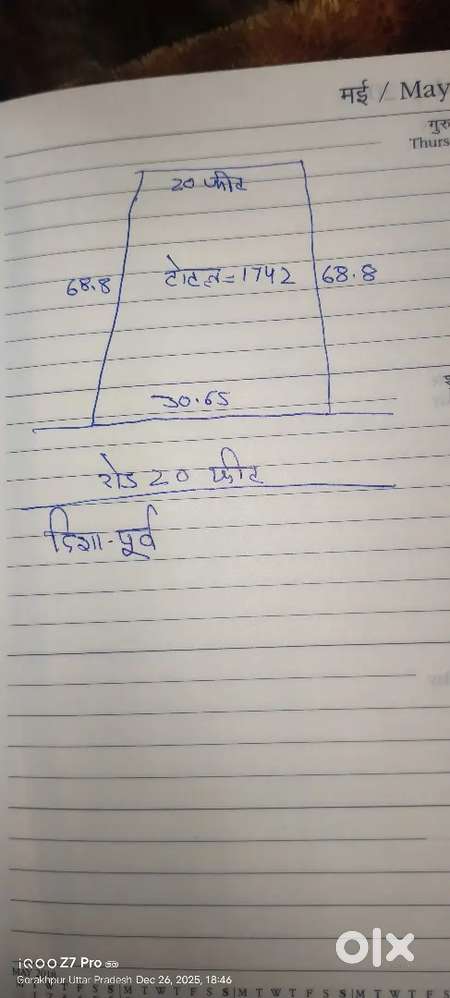 मई / May
गुरु
Thurs
20 फीट
68.8
टोटल=1742
68.8
30.65
रोड 20 फीट
दिशा-पूर्व
MAY 2018
iQOO Z7 Pro 5G
Gorakhpur Uttar Pradesh Dec 26, 2025, 18:46
olx